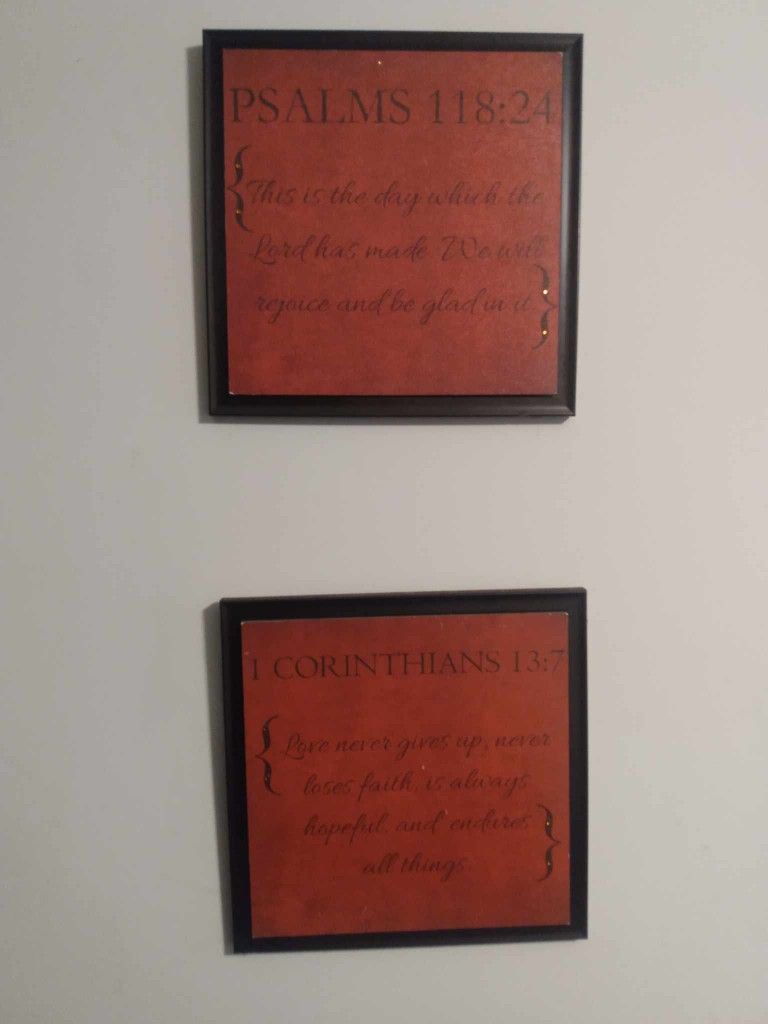 PSALMS 118:24
This is the day which the
Lord has made. We will
rejoice and be glad in it.
1 CORINTHIANS 13:7
Love never gives up, never
loses faith, is always
hopeful, and endures
all things.